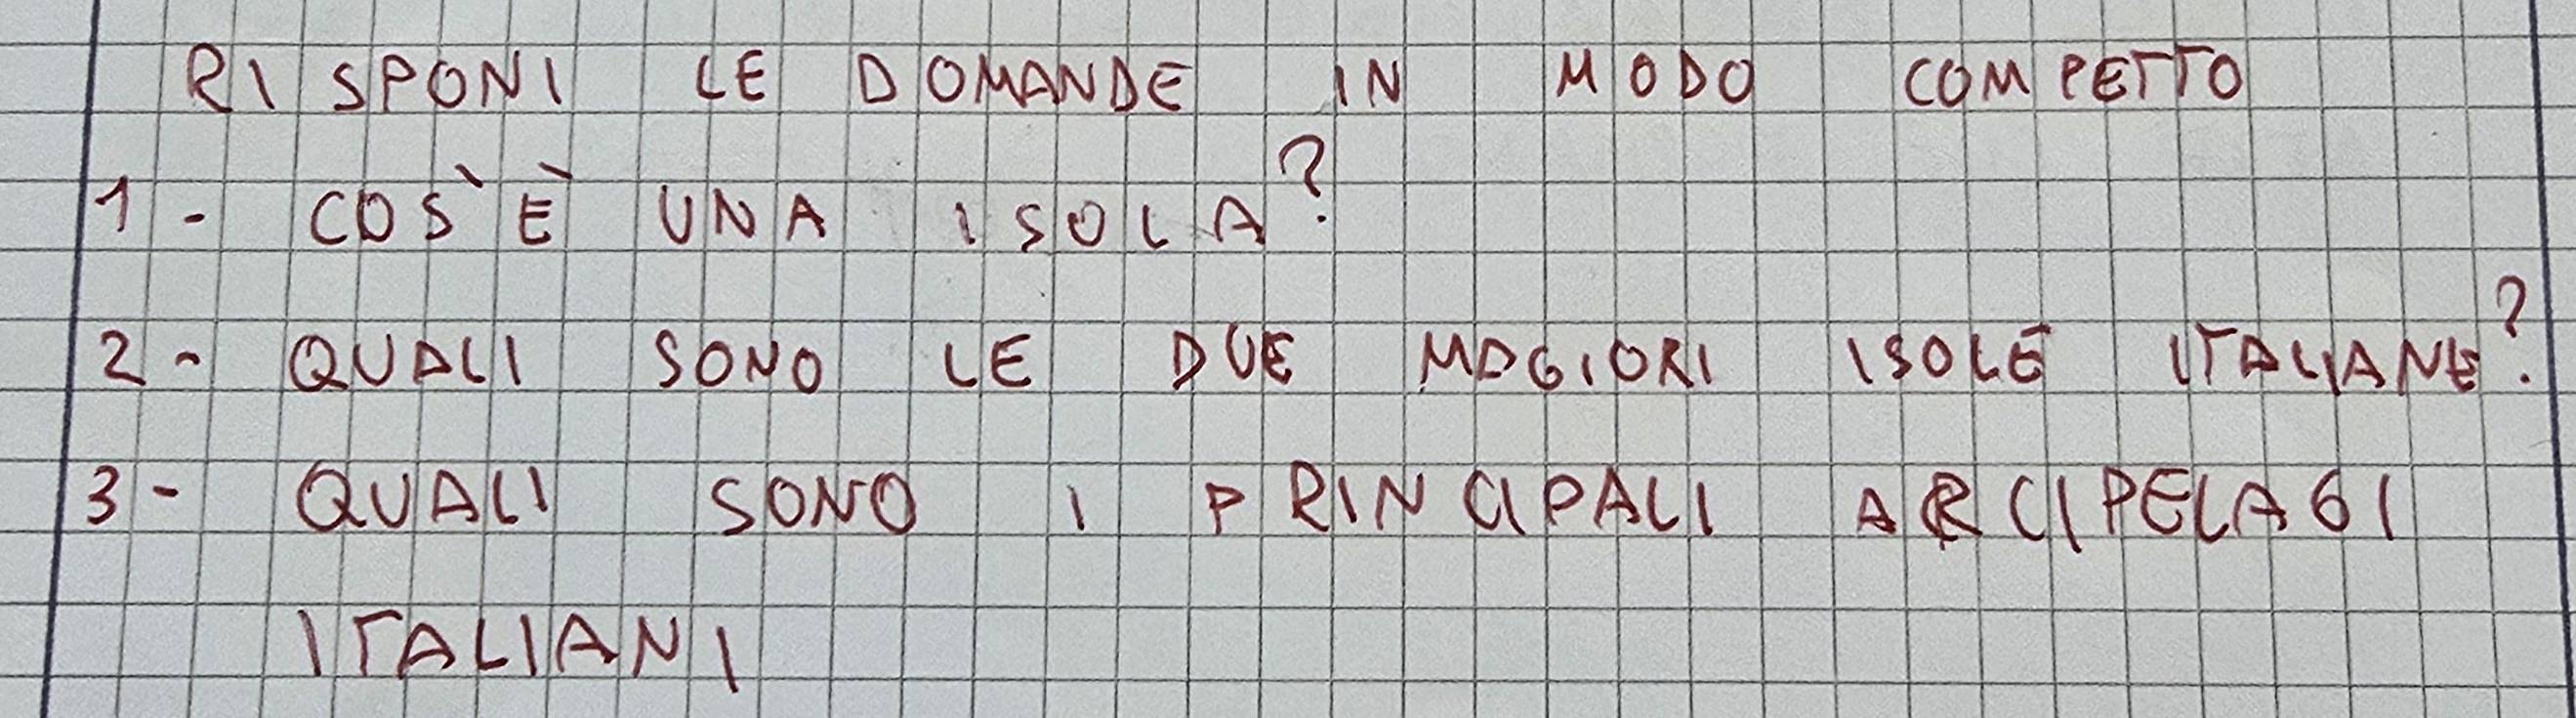 RISPONI LE DOMANDE IN MODO COMPETTO
1 - COS`È UNA ISOLA?
2 - QUALI SONO LE DUE MAGIORI ISOLE ITALIANE?
3 - QUALI SONO I PRINCIPALI ARCIPELAGI
ITALIANI